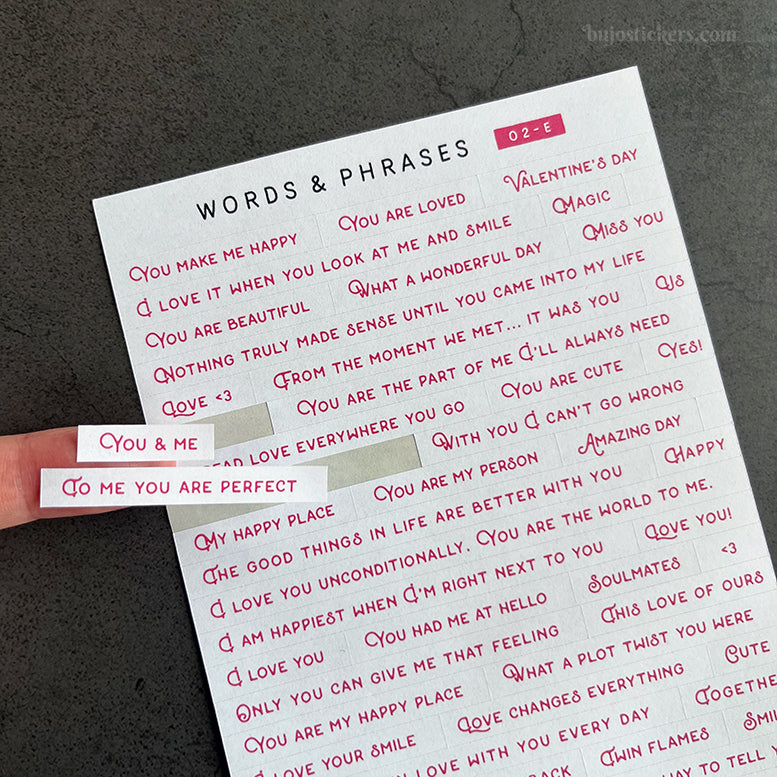 bujostickers.com
WORDS & PHRASES 02-E
You make me happy You are loved Valentine's day
I love it when you look at me and smile Magic
You are beautiful What a wonderful day Miss you
Nothing truly made sense until you came into my life
Love <3 From the moment we met... it was you Us
You are the part of me I'll always need
You & me
love everywhere you go You are cute Yes!
To me you are perfect
With you I can't go wrong
My happy place You are my person Amazing day
The good things in life are better with you Happy
I love you unconditionally. You are the world to me.
I am happiest when I'm right next to you Love you!
I love you You had me at hello Soulmates <3
Only you can give me that feeling This love of ours
You are my happy place What a plot twist you were
I love your smile Love changes everything Cute
love with you every day
Twin flames
to tell